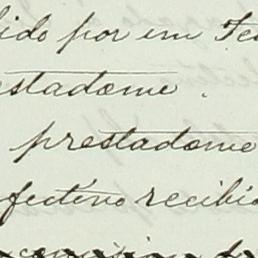 ido por em Te
estadome.
prestadome
fectivo recibi